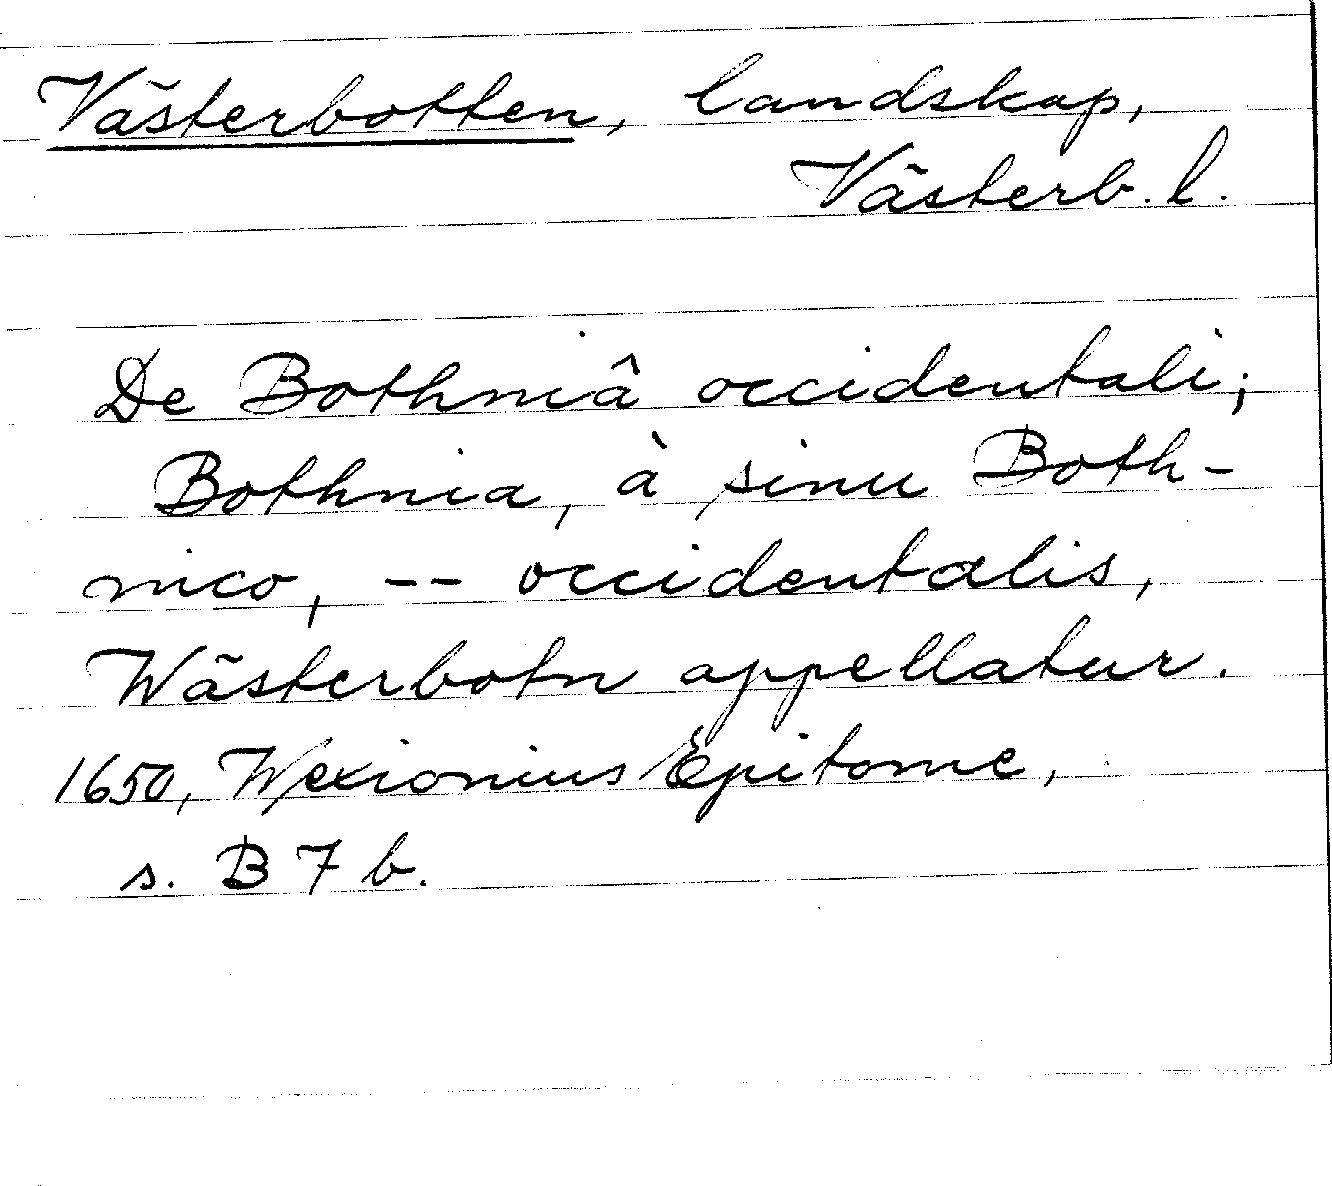 Västerbotten, landskap,
Västerb. l.
De Bothniâ occidentali;
Bothnia, à sinu Both-
nico, -- occidentalis,
Wästerbotn appellatur.
1650, Wexionius Epitome,
s. B 7 b.